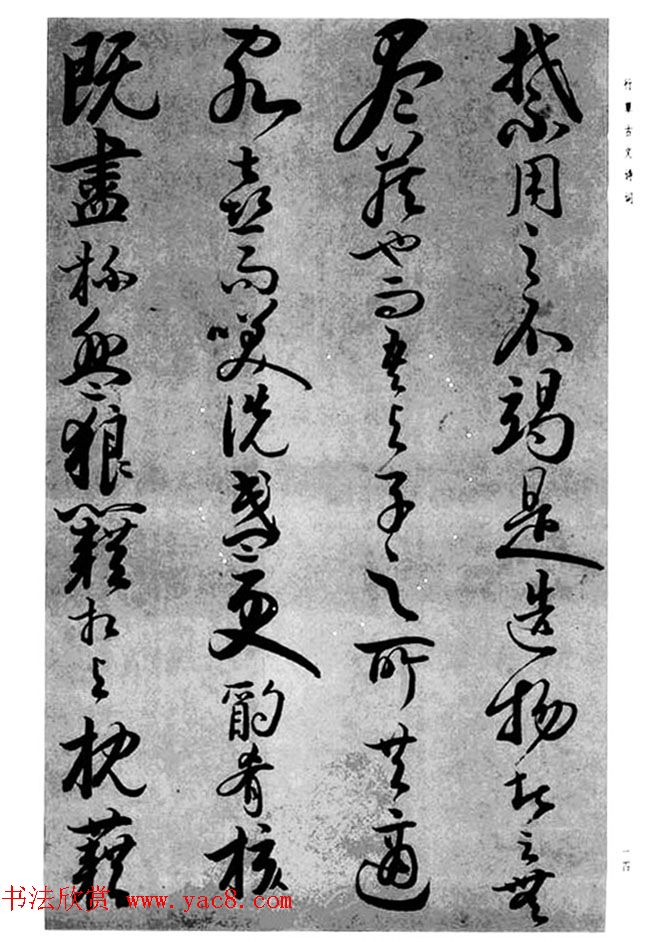 行草古文诗词
禁用之不竭是造物者之無
盡藏也而吾与子之所共適
客喜而咲洗盞更酌肴核
既盡杯盤狼籍相与枕藉
书法欣赏 www.yac8.com